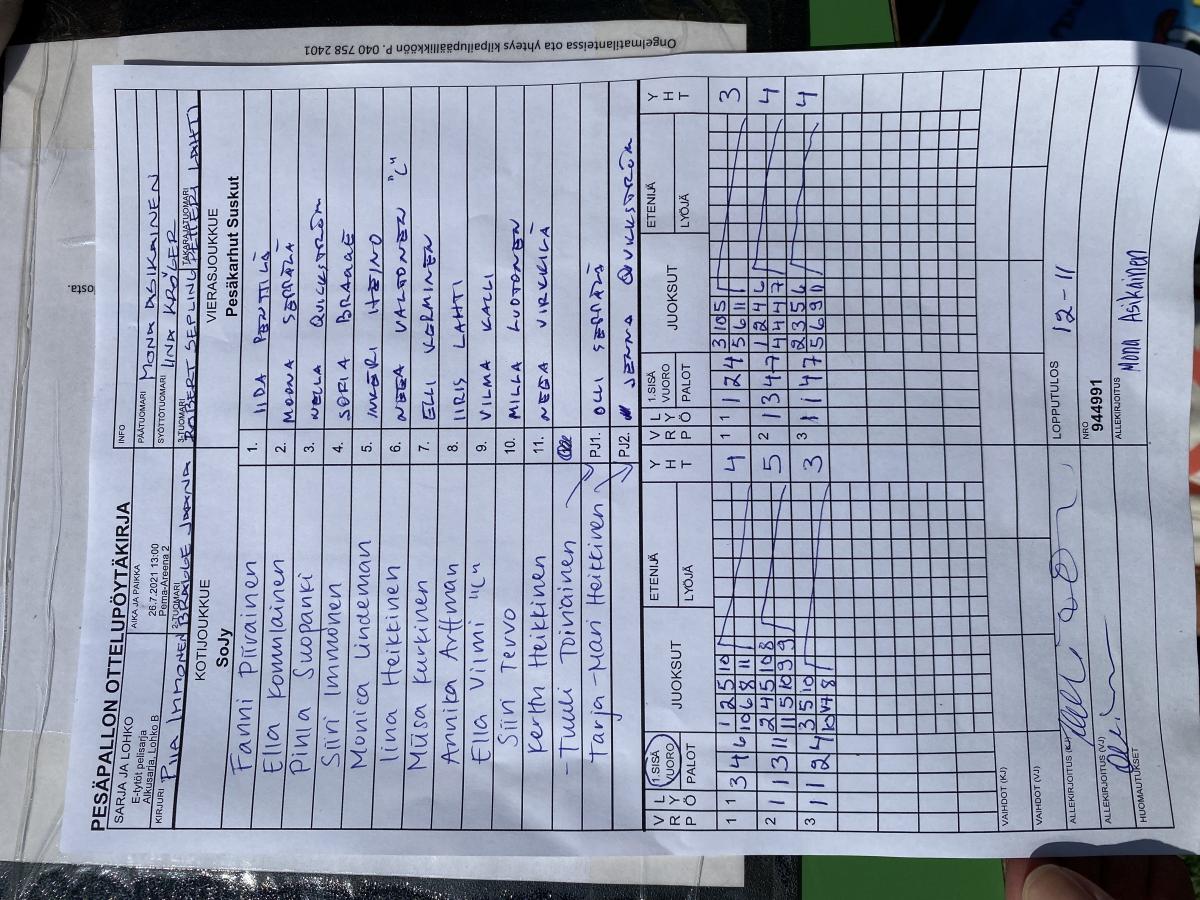 Ongelmatilanteissa ota yhteys kilpailupäällikköön P. 040 758 2401
osta.
PESÄPALLON OTTELUPÖYTÄKIRJA
SARJA JA LOHKO
E-tytöt pelisarja
Alkusarja, Lohko B
AIKA JA PAIKKA
26.7.2021 13:00
Pema-Areena 2
INFO
PÄÄTUOMARI MONA ASIKAINEN
SYÖTTÖTUOMARI IINA KRÖGER
KIRJURI PIIA IMMONEN
2-TUOMARI BRAGGE JAANA
3-TUOMARI ROBERT SEPLING
TAKARAJATUOMARI PETTERI LAHTI
KOTIJOUKKUE
SoJy
VIERASJOUKKUE
Pesäkarhut Suskut
Fanni Piivainen 1. IIDA PENTTILÄ
Ella Komulainen 2. MOONA SEPPÄLÄ
Pinla Suopanki 3. NELLA QUICKSTRÖM
Siiri Immonen 4. SOFIA BRAGGE
Monica Lindeman 5. INKERI HEINO
Iina Heikkinen 6. NEEA VALTONEN "C"
Miisa Kurkinen 7. ELLI KERMINEN
Annika Arffman 8. IIRIS LAHTI
Ella Vilmi "C" 9. VILMA KALLI
Siiri Tervo 10. MILLA LUOTONEN
Kerttu Heikkinen 11. NEEA VIRKKILÄ
- Tuuli Toiviainen
PJ1. OLLI SEPPÄLÄ
Tarja-Mari Heikkinen PJ2. JENNA QVICKSTRÖM
V R P L Y Ö 1.SISÄ VUORO PALOT JUOKSUT ETENIJÄ LYÖJÄ Y H T V R P L Y Ö 1.SISÄ VUORO PALOT JUOKSUT ETENIJÄ LYÖJÄ Y H T
1 1 3 4 6 1 2 5 10 4 1 1 1 2 4 3 10 5 3
10 6 8 11 5 6 11
2 1 1 3 11 2 4 5 10 8 5 2 1 3 4 7 1 2 4 6 4
11 5 10 9 9 4 4 4 7
3 1 1 2 4 3 5 10 3 3 1 1 4 7 2 3 5 6 4
10 7 8 5 6 9 11
VAIHDOT (KJ)
VAIHDOT (VJ)
ALLEKIRJOITUS (KJ)
LOPPUTULOS 12-11
ALLEKIRJOITUS (VJ)
NRO
944991
HUOMAUTUKSET
ALLEKIRJOITUS
Mona Asikainen